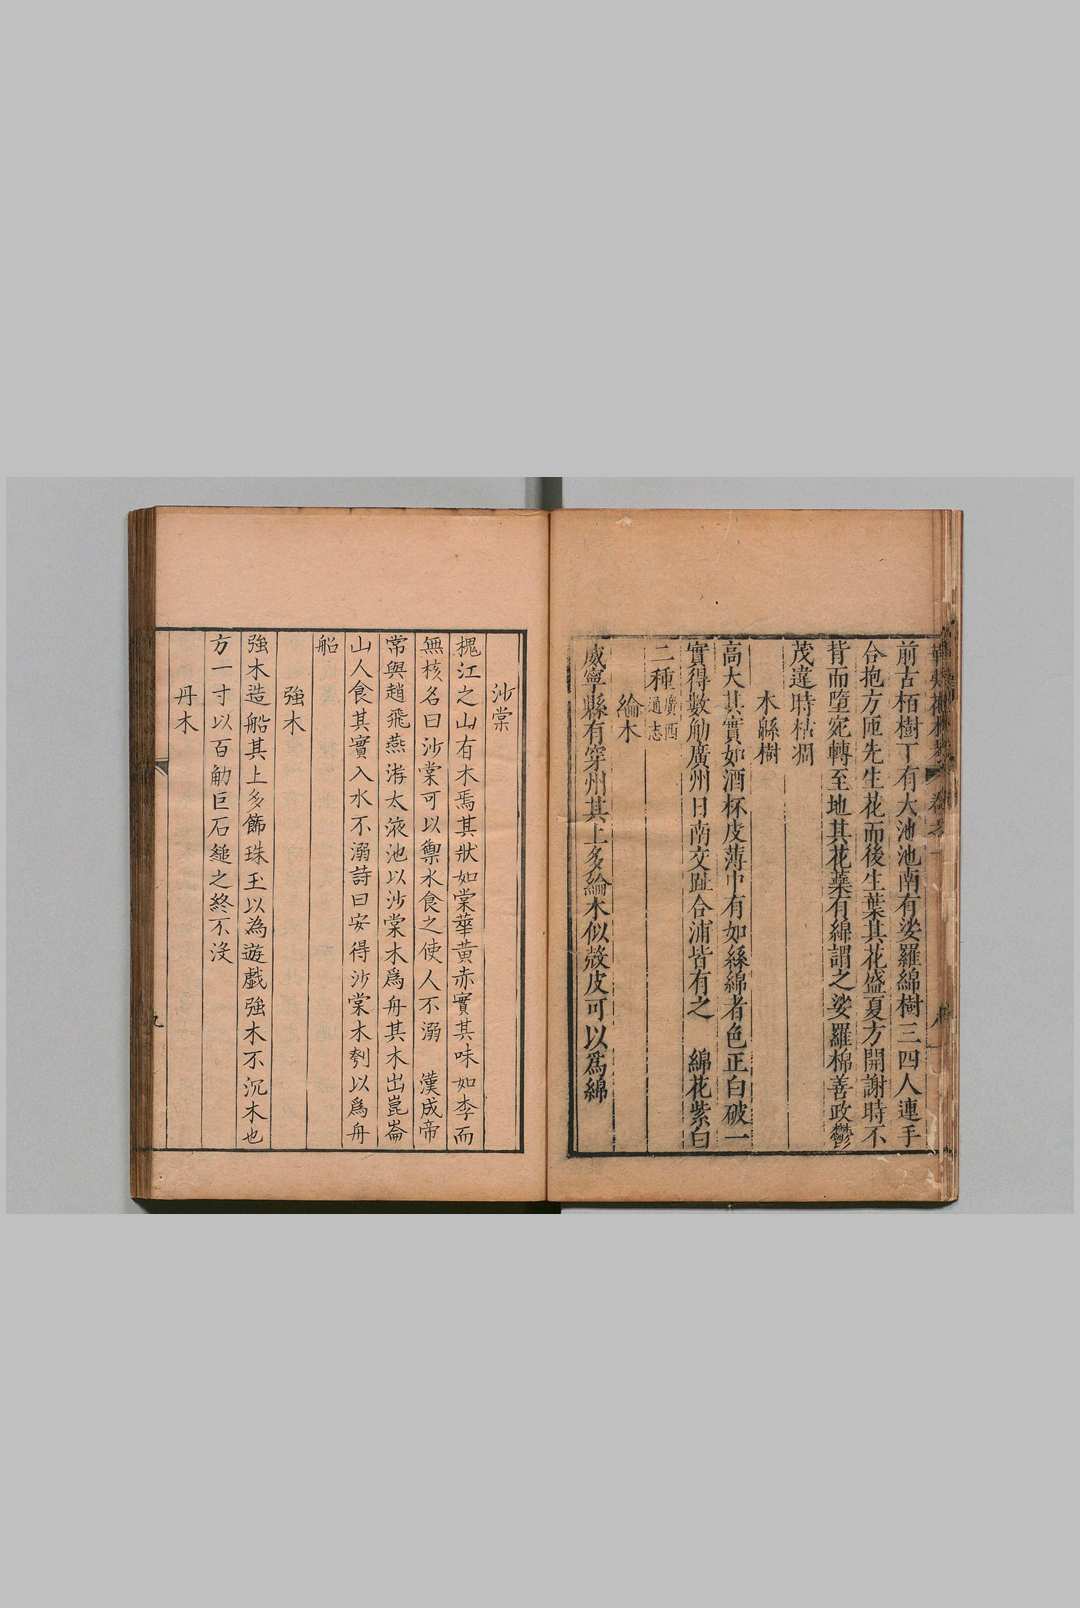 前古栢樹丁有大池池南有娑羅綿樹三四人連手
合抱方匝先生花而後生葉其花盛夏方開謝時不
背而墮宛轉至地其花蘂有綿謂之娑羅棉善政鬱
茂違時枯凋
木緜樹
高大其實如酒杯皮薄中有如絲綿者色正白破一
實得數觔廣州日南交趾合浦皆有之　綿花紫白
二種廣西通志
綸木
威寧縣有穿州其上多綸木似殻皮可以爲綿
沙棠
槐江之山有木焉其狀如棠華黃赤實其味如李而
無核名曰沙棠可以禦水食之使人不溺　漢成帝
常與趙飛燕游太液池以沙棠木爲舟其木出崑崙
山人食其實入水不溺詩曰安得沙棠木刳以爲舟
船
強木
強木造船其上多飾珠玉以為遊戲強木不沉木也
方一寸以百觔巨石縋之終不沒
丹木